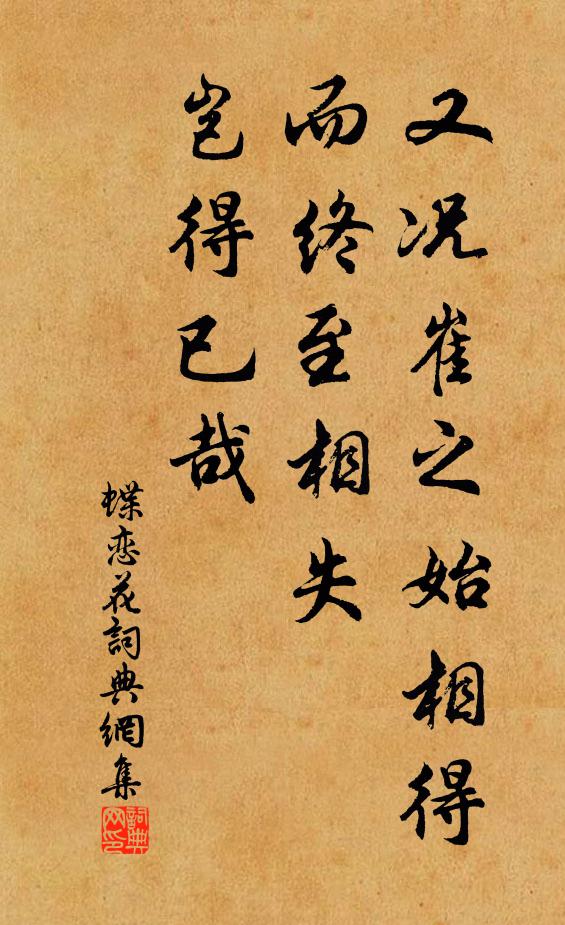 又况崔之始相得
而终至相失
岂得已哉
蝶恋花詞典網集
詞典
网印